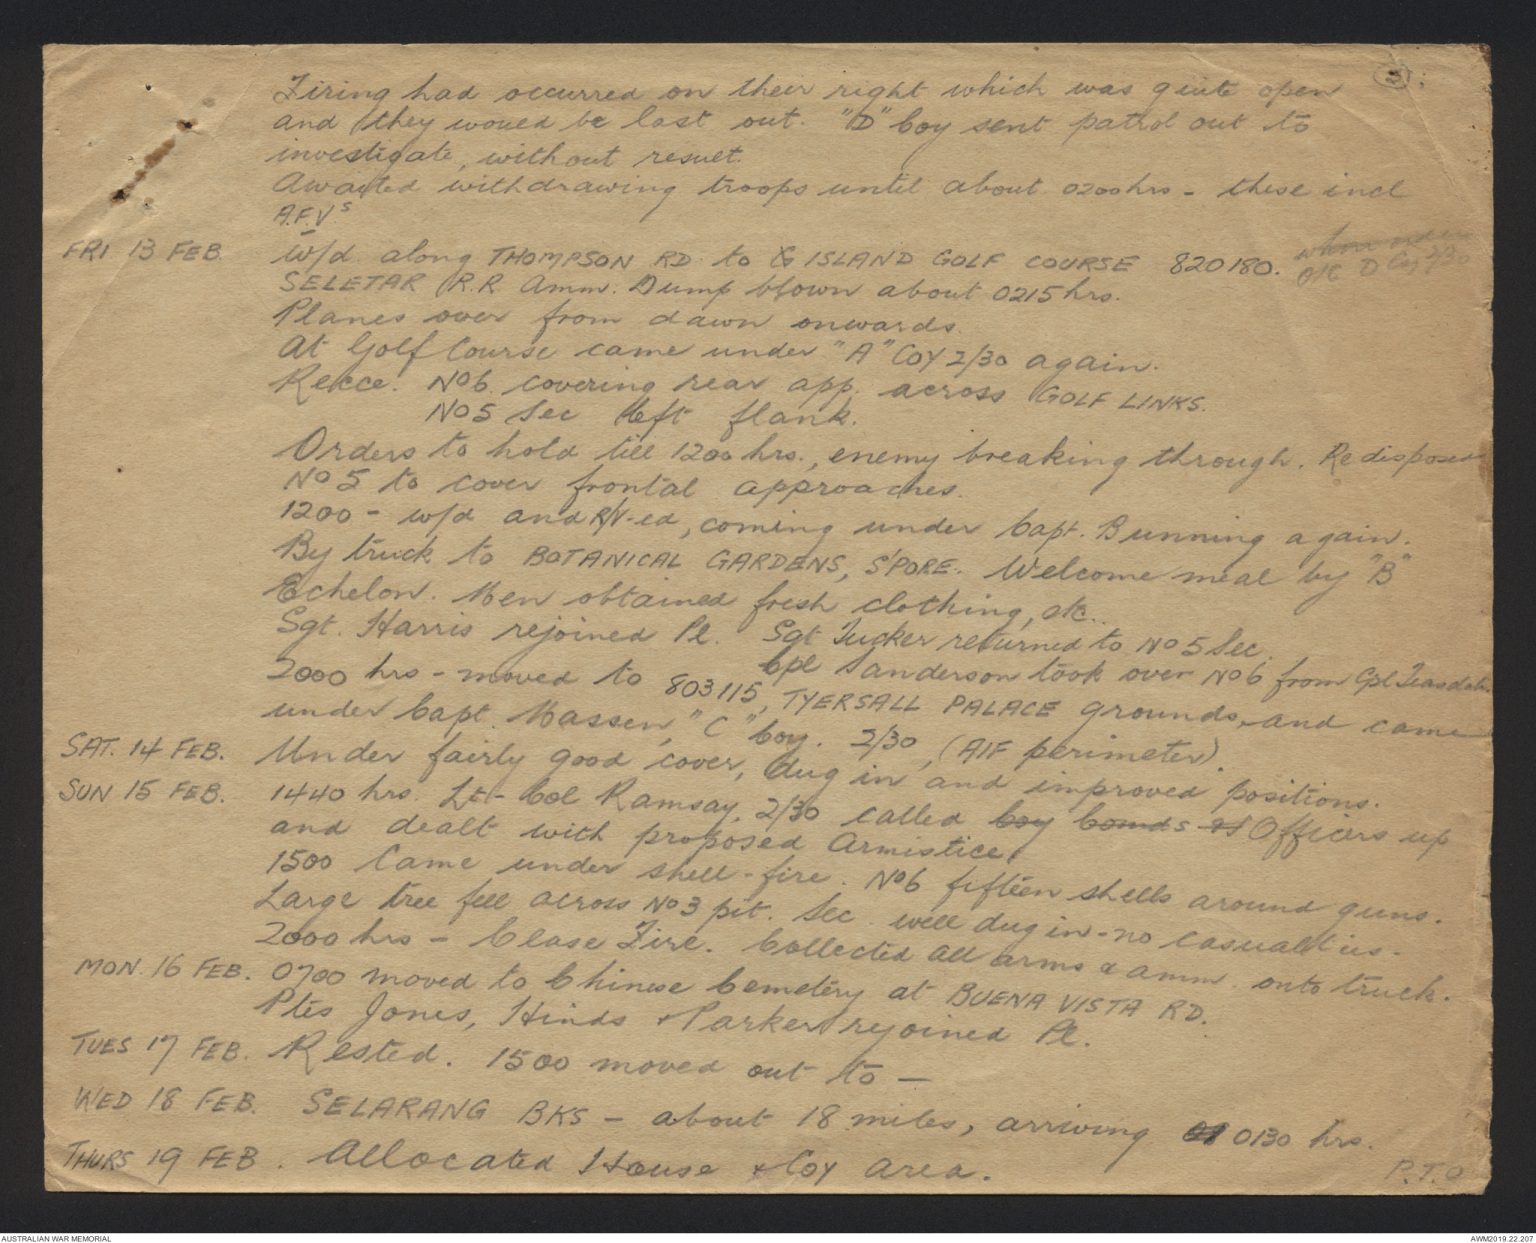 3
Firing had occurred on their right which was quite open
and they would be last out. "D" Coy sent patrol out to
investigate, without result.
Awaited withdrawing troops until about 0200 hrs - these incl
A.F.Vs
FRI 13 FEB. W/d. along THOMPSON RD to ISLAND GOLF COURSE 820180. O/C D Coy 2/30
SELETAR R.R. Amm. Dump blown about 0215 hrs.
Planes over from dawn onwards.
At Golf Course came under "A" COY 2/30 again.
Recce. No 6. covering rear app. across GOLF LINKS.
No 5 Sec left flank.
Orders to hold till 1200 hrs., enemy breaking through. Redisposed
No 5 to cover frontal approaches.
1200 - w/d and R/V-ed, coming under Capt. Bunning again.
By truck to BOTANICAL GARDENS, S'PORE. Welcome meal by "B"
Echelon. Men obtained fresh clothing, etc..
Sgt. Harris rejoined Pl. Sgt Tucker returned to No 5 Sec.
Cpl Sanderson took over No 6 from Cpl Teasdale
2000 hrs - moved to 803115, TYERSALL PALACE grounds, and came
under Capt. Massen, "C" Coy. 2/30, (AIF perimeter).
SAT. 14 FEB. Under fairly good cover, dug in and improved positions.
SUN 15 FEB. 1440 hrs. Lt-Col Ramsay, 2/30 called Coy Comds Officers up
and dealt with proposed Armistice.
1500 Came under shell-fire. No 6 fifteen shells around guns.
Large tree fell across No 3 pit. Sec. well dug in - no casualties.
2000 hrs - Cease Fire. Collected all arms & amm. onto truck.
MON. 16 FEB. 0700 moved to Chinese Cemetery at BUENA VISTA RD.
Ptes Jones, Hinds & Parker rejoined Pl.
TUES 17 FEB. Rested. 1500 moved out to —
WED 18 FEB. SELARANG BKS - about 18 miles, arriving 0130 hrs.
THURS 19 FEB. Allocated House & Coy area.
P.T.O
AUSTRALIAN WAR MEMORIAL
AWM2019.22.207